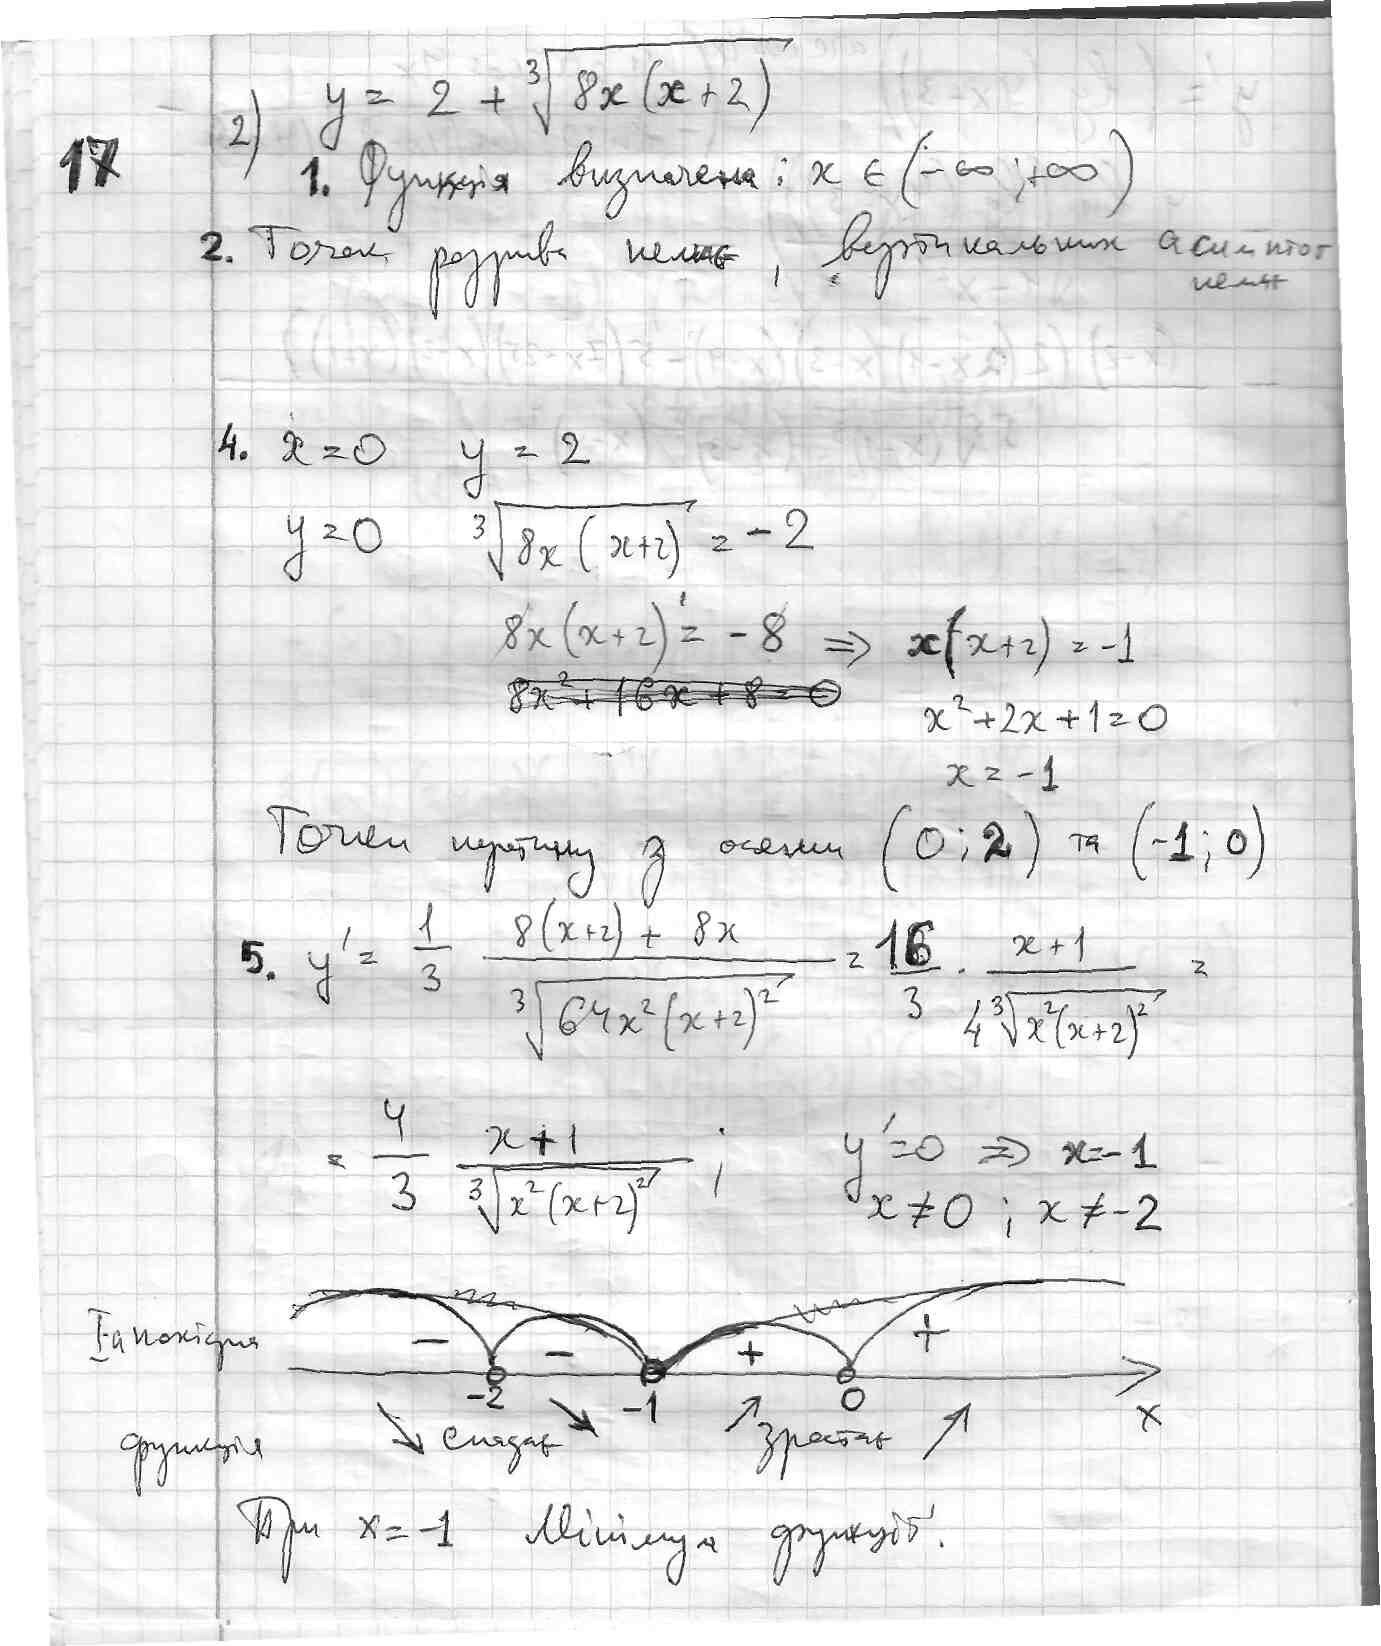 2) y = 2 + ∛(8x(x+2))
17
1. Функція визначена: x ∈ (-∞; +∞)
2. Точок розрива немає, вертикальних асимптот
немає
4. x = 0 y = 2
y = 0 ∛(8x(x+2)) = -2
8x(x+2) = -8 ⇒ x(x+2) = -1
8x² + 16x + 8 = 0
x² + 2x + 1 = 0
x = -1
Точки перетину з осями (0; 2) та (-1; 0)
5. y' = 1/3 (8(x+2) + 8x)/∛(64x²(x+2)²) = 16/3 · (x+1)/(4∛(x²(x+2)²)) =
= 4/3 (x+1)/∛(x²(x+2)²) ; y' = 0 ⇒ x = -1
x ≠ 0 ; x ≠ -2
I-а похідна − − + +
-2 -1 0 x
функція ↘ спадає ↘ ↗ зростає ↗
При x = -1 Мінімум функції.